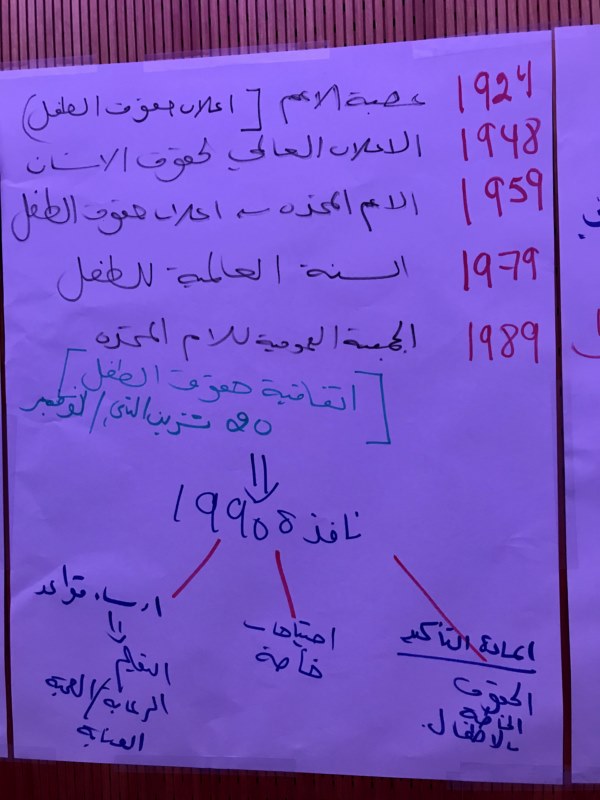 1924 عصبة الامم [اعلان حقوق الطفل)
1948 الاعلان العالمي لحقوق الانسان
1959 الامم المتحده ← اعلان حقوق الطفل
1979 السنة العالمية للطفل
1989 الجمعية العمومية للامم المتحده
[اتفاقية حقوق الطفل]
20 تشرين الثاني/نوفمبر
⇓
نافذة 1990
ارساء قواعد
⇓
التعليم
الرعاية/الصحية
العناية
احتياجات
خاصة
اعادة التأكيد
الحقوق
الخاصة
بالاطفال.